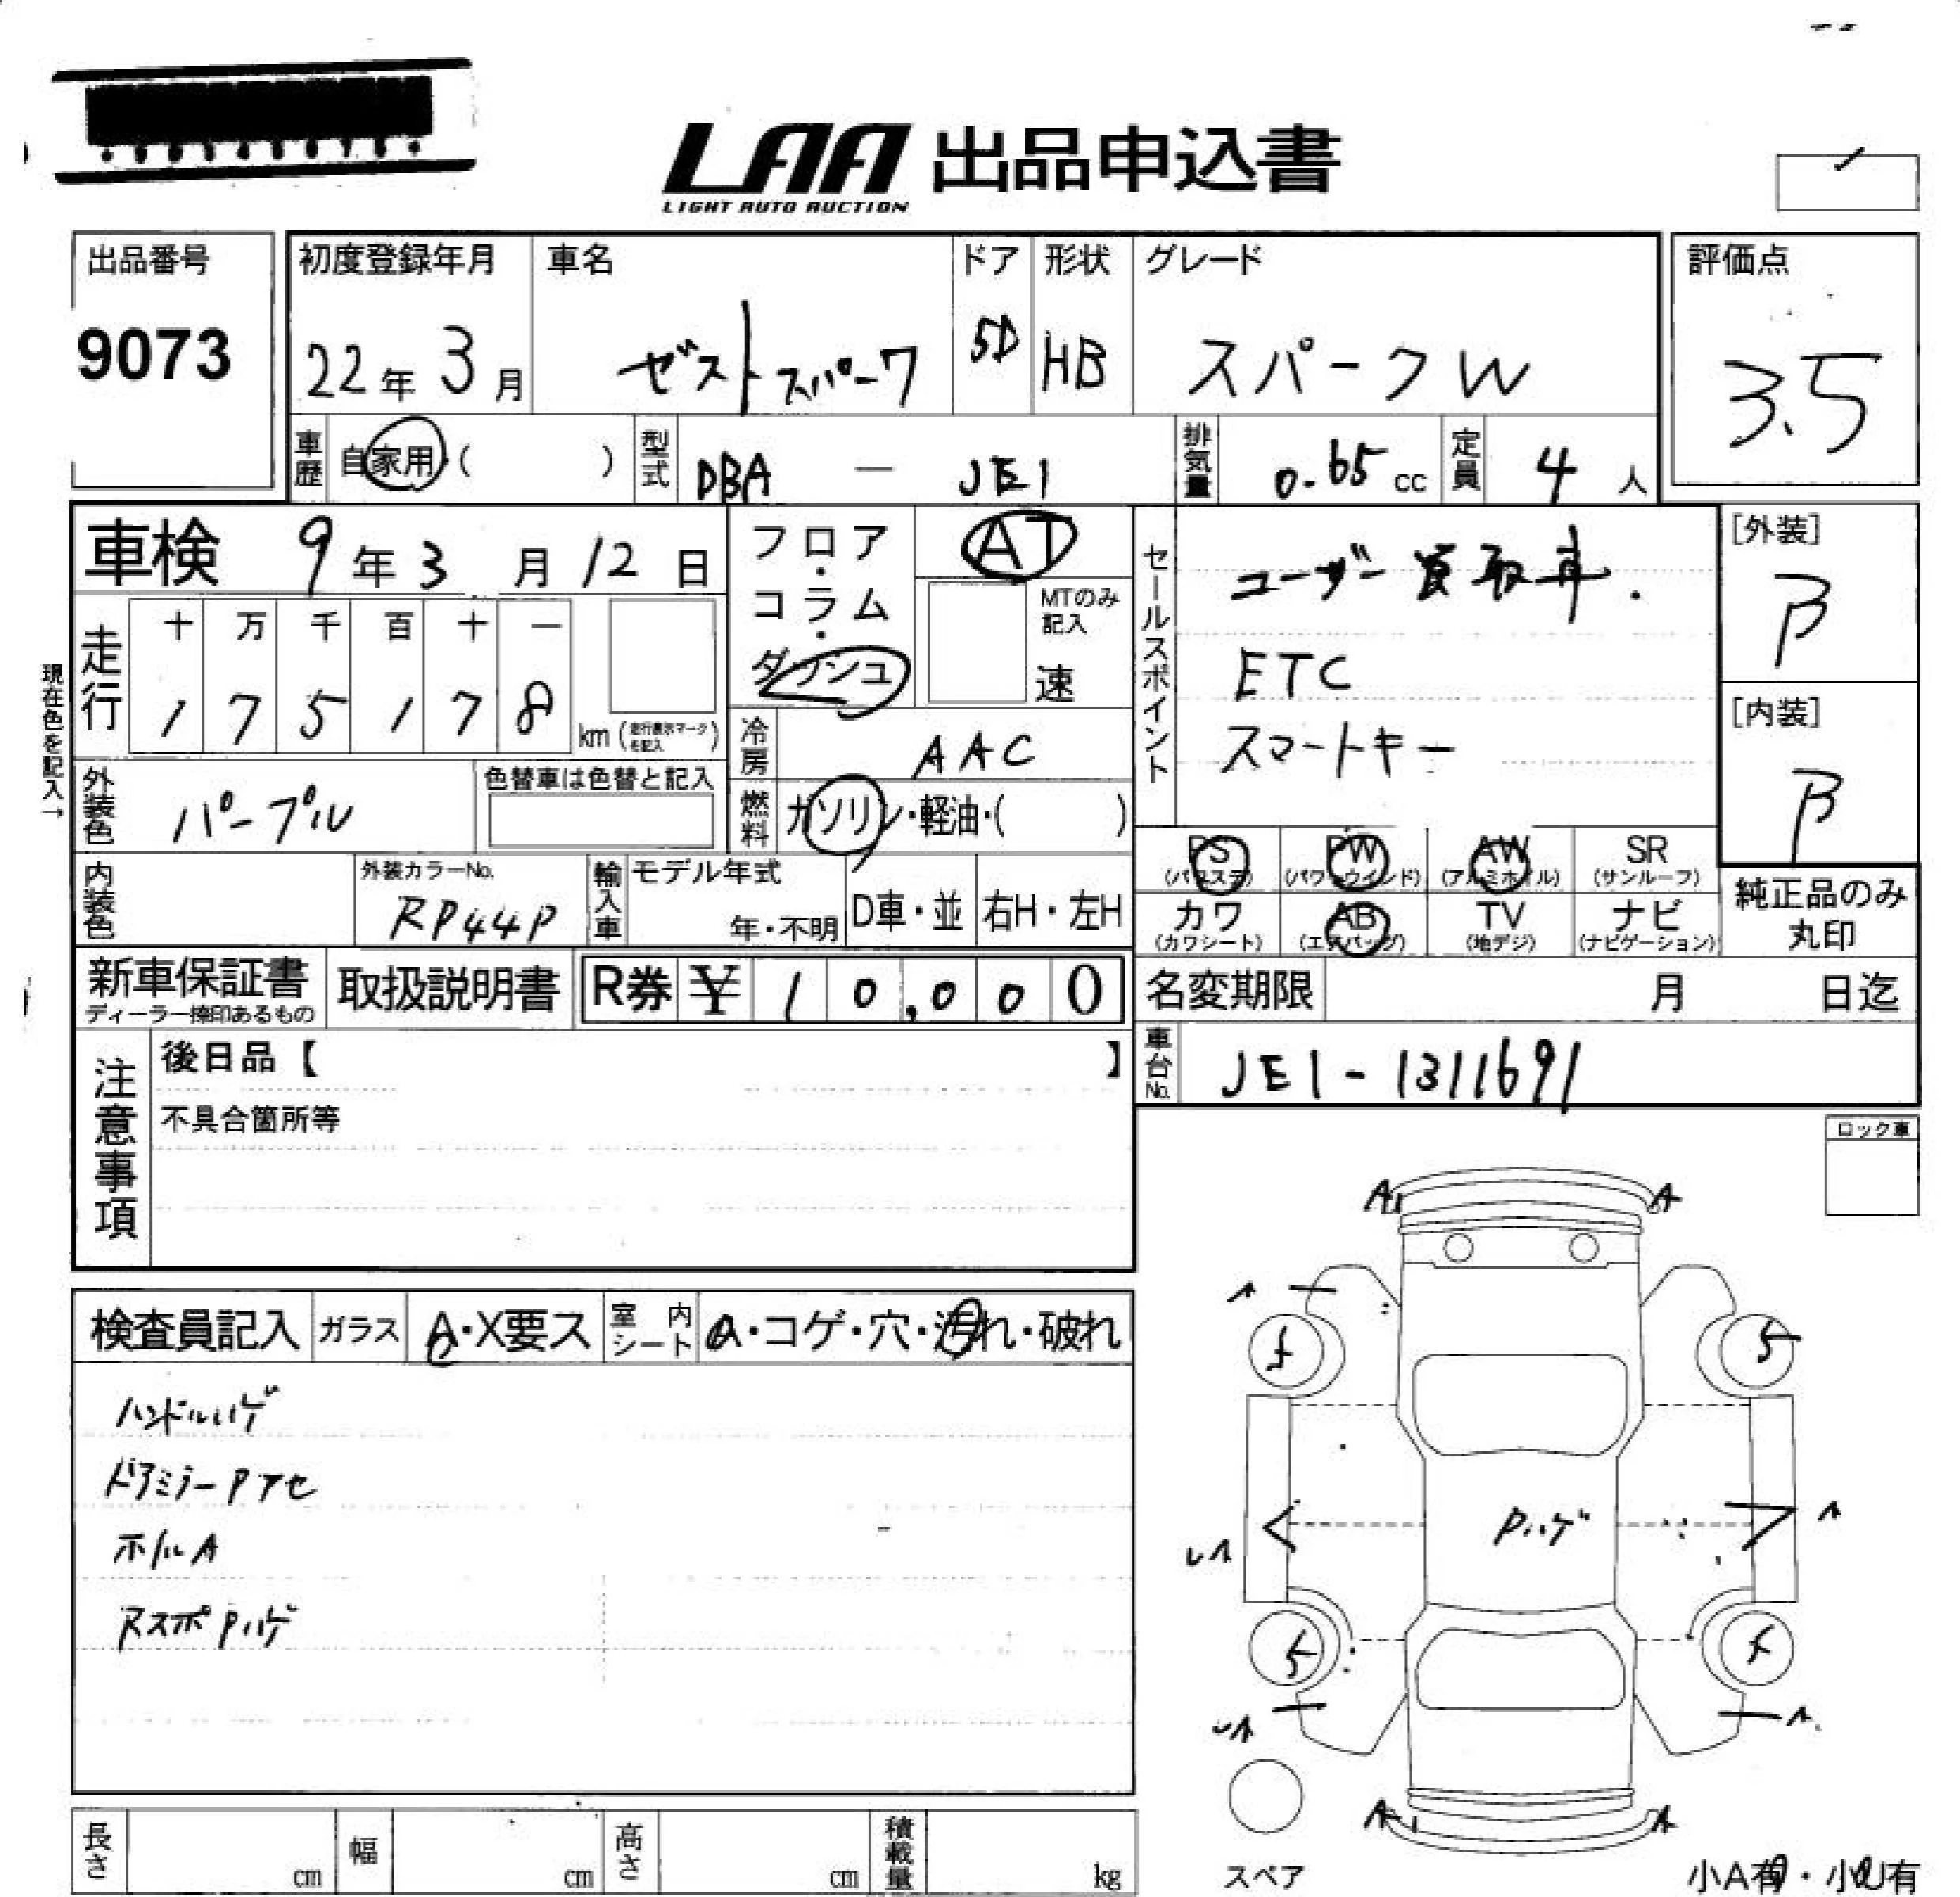 LAA 出品申込書
LIGHT AUTO AUCTION
出品番号
9073
初度登録年月 車名 ドア 形状 グレード
22年 3月 ゼストスパーク 5D HB スパークW
評価点
3.5
車歴 自家用・( ) 型式 DBA — JE1 排気量 0.65cc 定員 4人
車検 9年3月12日
フロア・コラム・ダッシュ
AT
MTのみ記入
速
セールスポイント
ユーザー買取車.
ETC
スマートキー
[外装]
β
[内装]
β
現在色を記入→
走行 十 万 千 百 十 一
1 7 5 1 7 8 km(走行表示マークを記入)
冷房 AAC
外装色 パープル 色替車は色替と記入
燃料 ガソリン・軽油・( )
PS PW AW SR
(パワステ) (パワーウインド) (アルミホイル) (サンルーフ)
カワ AB TV ナビ
(カワシート) (エアバッグ) (地デジ) (ナビゲーション)
純正品のみ
丸印
内装色 外装カラーNo. RP44P 輸入車 モデル年式 年・不明 D車・並 右H・左H
新車保証書
ディーラー捺印あるもの
取扱説明書 R券 ¥ 10,000
名変期限 月 日迄
車台No. JE1-1311691
注意事項
後日品【 】
不具合箇所等
ロック車
検査員記入 ガラス A・X要ス 室内シート A・コゲ・穴・汚れ・破れ
ハンドルハゲ
ドアミラーPアセ
ホイルA
RスポPハゲ
A A
5 5
Pハゲ
5 5
A A
スペア
長さ cm 幅 cm 高さ cm 積載量 kg
小A有・小U有